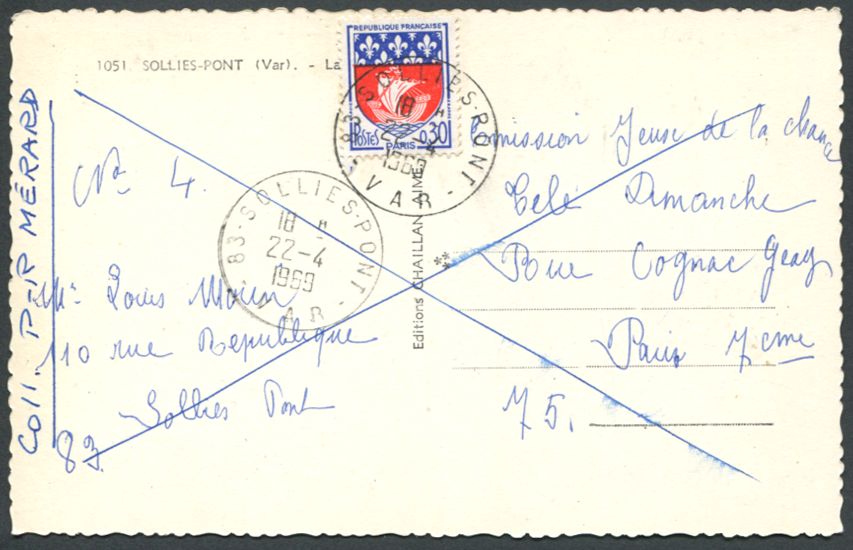 1051 SOLLIES-PONT (Var). - La
REPUBLIQUE FRANÇAISE
POSTES 0,30
PARIS
83-SOLLIES-PONT
18 H
22-4
1969
VAR
Coll. P-R MÉRARD
N° 4.
83-SOLLIES-PONT
18 H
22-4
1969
VAR
Mr Louis
110 rue Republique
Sollies Pont
83
Editions CHAILLAN AIMÉ
**
Emission Jeux de la chance
Télé Dimanche
Rue Cognac Geay
Paris 7eme
75.